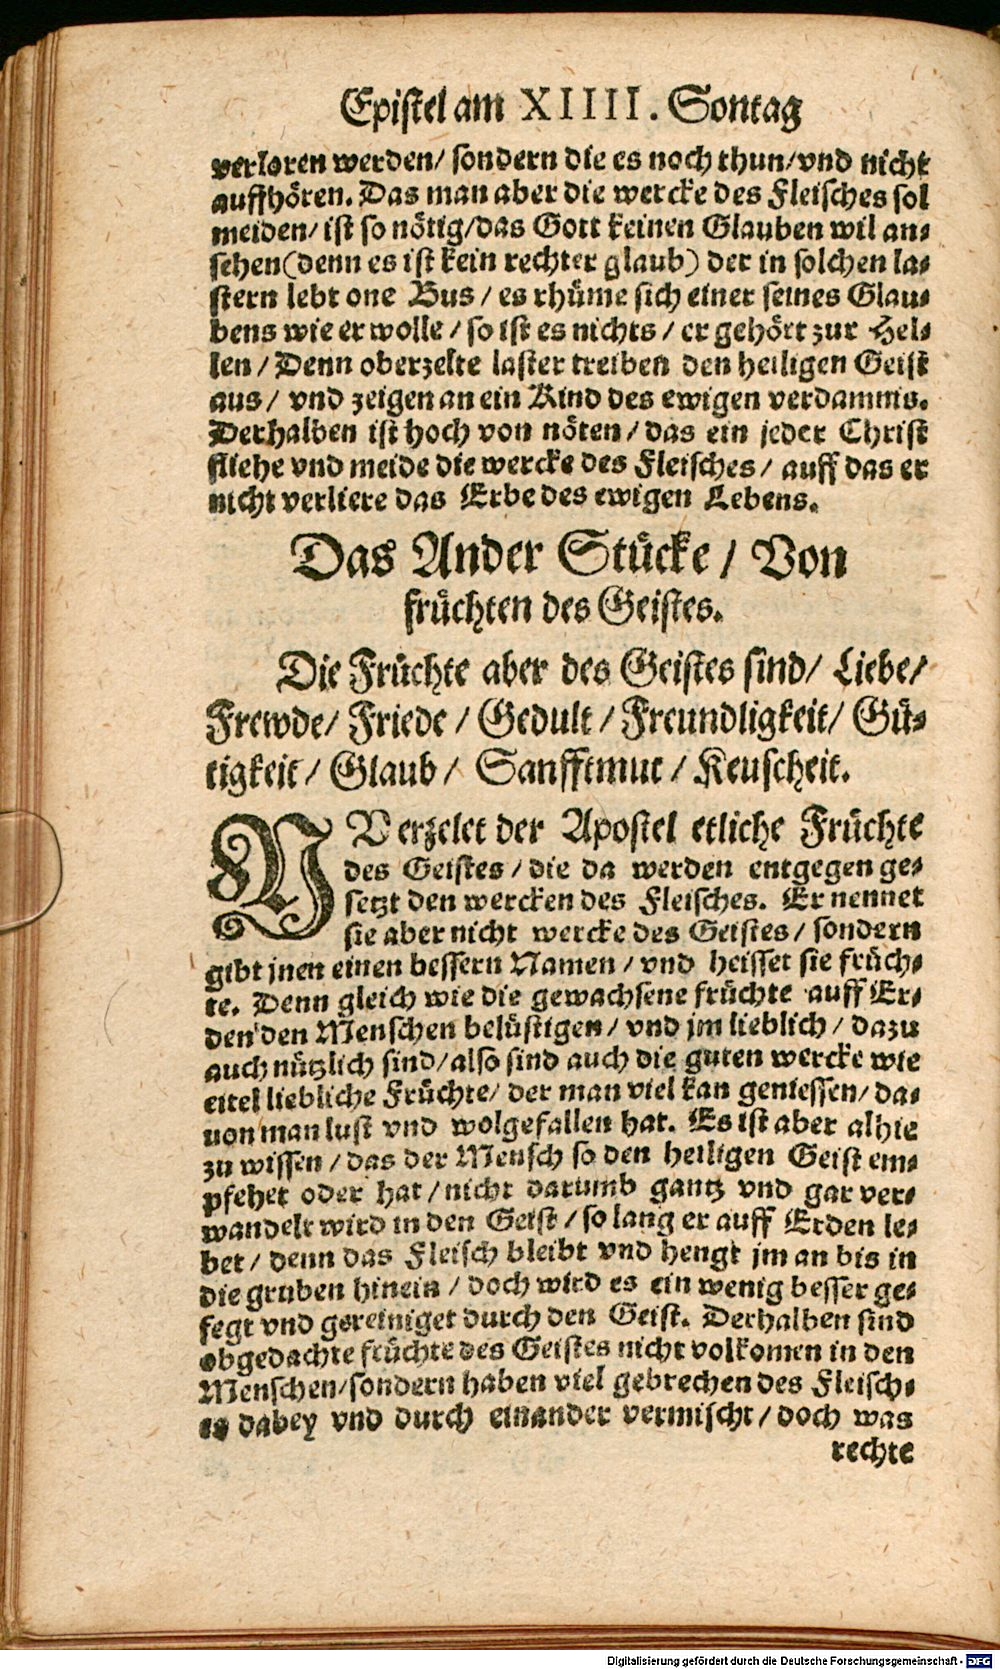 Epistel am XIIII. Sontag
verloren werden/ sondern die es noch thun/ vnd nicht
auffhören. Das man aber die wercke des Fleisches sol
meiden/ ist so nötig/ das Gott keinen Glauben wil an-
sehen (denn es ist kein rechter glaub) der in solchen la-
stern lebt one Bus/ es rhüme sich einer seines Glau-
bens wie er wolle/ so ist es nichts/ er gehört zur Hel-
len/ Denn oberzelte laster treiben den heiligen Geist
aus/ vnd zeigen an ein Kind des ewigen verdamnis.
Derhalben ist hoch von nöten/ das ein jeder Christ
fliehe vnd meide die wercke des Fleisches/ auff das er
nicht verliere das Erbe des ewigen Lebens.
Das Ander Stücke/ Von
früchten des Geistes.
Die Früchte aber des Geistes sind/ Liebe/
Frewde/ Friede/ Gedult/ Freundligkeit/ Gü-
tigkeit/ Glaub/ Sanfftmut/ Keuscheit.
NV erzelet der Apostel etliche Früchte
des Geistes/ die da werden entgegen ge-
setzt den wercken des Fleisches. Er nennet
sie aber nicht wercke des Geistes/ sondern
gibt jnen einen bessern Namen/ vnd heisset sie früch-
te. Denn gleich wie die gewachsene früchte auff Er-
den den Menschen belüstigen/ vnd jm lieblich/ dazu
auch nützlich sind/ also sind auch die guten wercke wie
eitel liebliche Früchte/ der man viel kan geniessen/ da-
uon man lust vnd wolgefallen hat. Es ist aber alhie
zu wissen/ das der Mensch so den heiligen Geist em-
pfehet oder hat/ nicht darumb gantz vnd gar ver-
wandelt wird in den Geist/ so lang er auff Erden le-
bet/ denn das Fleisch bleibt vnd hengt jm an bis in
die gruben hinein/ doch wird es ein wenig besser ge-
fegt vnd gereiniget durch den Geist. Derhalben sind
obgedachte früchte des Geistes nicht volkomen in den
Menschen/ sondern haben viel gebrechen des Fleisch-
es dabey vnd durch einander vermischt/ doch was
rechte
Digitalisierung gefördert durch die Deutsche Forschungsgemeinschaft - DFG